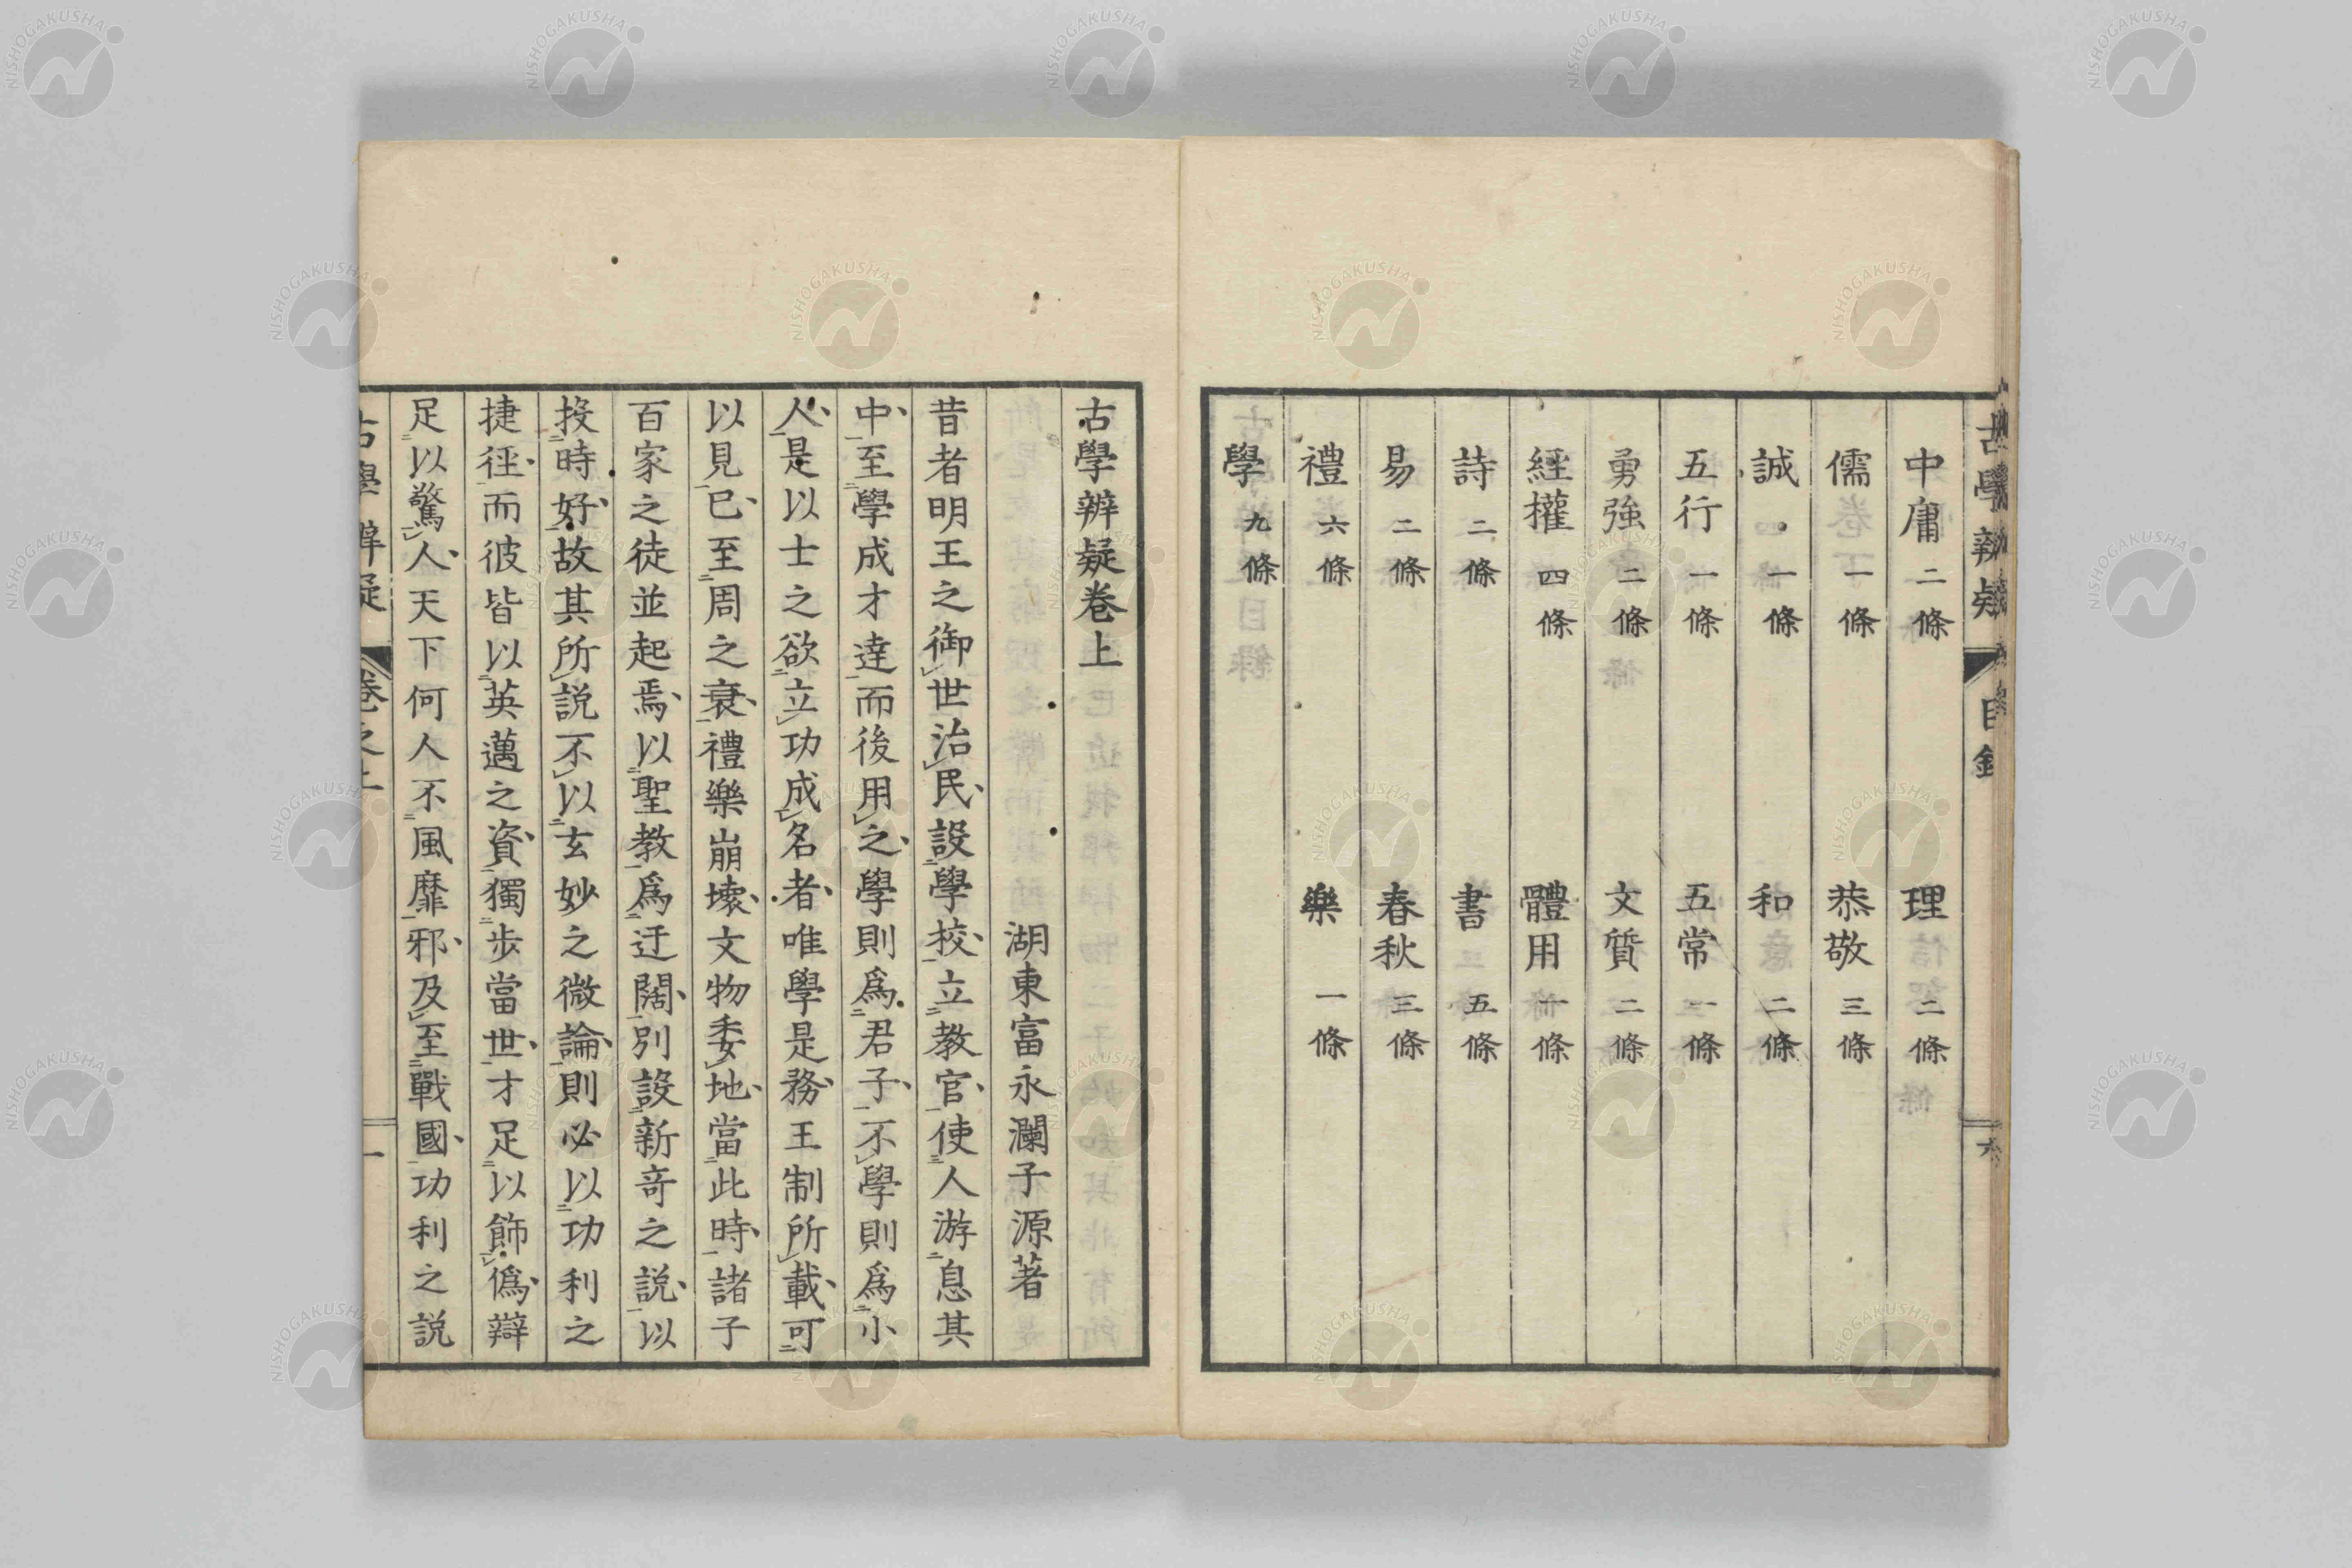 中庸 二條 理 二條
儒 一條 恭敬 三條
誠 一條 和 二條
五行 一條 五常 一條
勇強 二條 文質 二條
經權 四條 體用 一條
詩 二條 書 五條
易 二條 春秋 三條
禮 六條 樂 一條
學 九條
古學辨疑卷上
湖東富永瀾子源著
昔者明王之御世治民設學校立教官使人游息其
中至學成才達而後用之學則爲君子不學則爲小
人是以士之欲立功成名者唯學是務王制所載可
以見已至周之衰禮樂崩壞文物委地當此時諸子
百家之徒並起焉以聖教爲迂闊別設新奇之説以
投時好故其所説不以玄妙之微論則必以功利之
捷徑而彼皆以英邁之資獨步當世才足以飾僞辯
足以驚人天下何人不風靡邪及至戰國功利之説
古學辨疑 卷之上 一
NISHOGAKUSHA